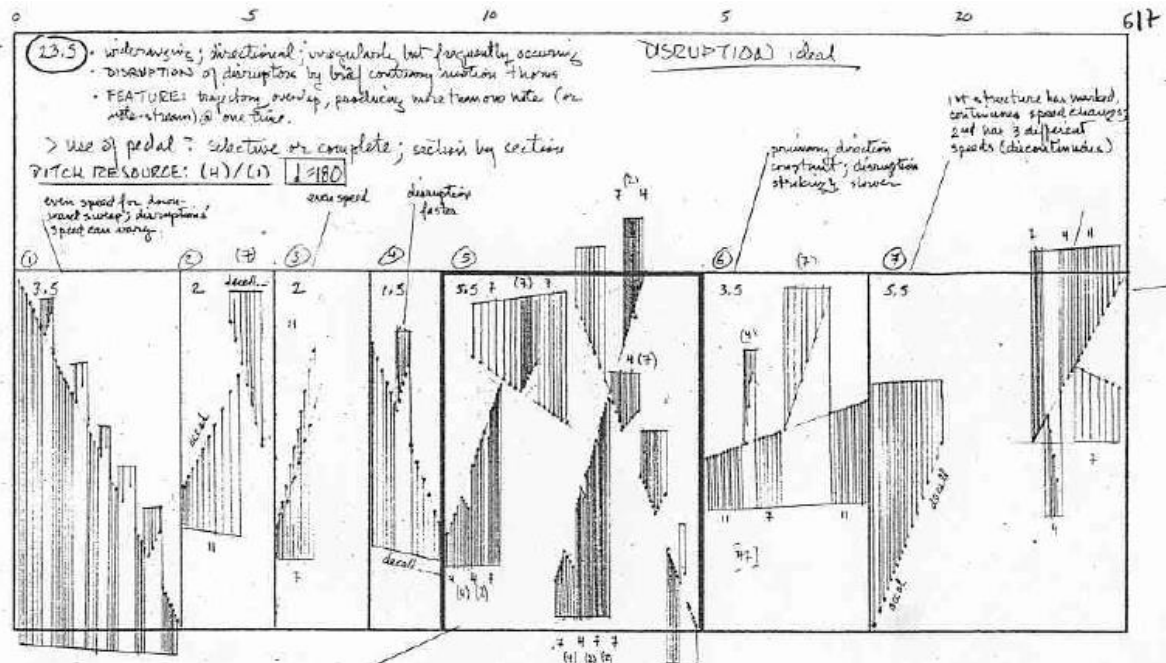 0 5 10 5 20 617
23.5 • wideranging; directional; irregularly but frequently occurring
DISRUPTION ideal
• DISRUPTION of disruptors by brief contrary motion
• FEATURE: trajectory overlap, producing more than one note (or
note-stream) @ one time.
> use of pedal: selective or complete; section by section
PITCH RESOURCE: (4)/(1) ♩=180
even speed for down-
ward sweep; disruptions'
speed can vary
even speed
disruption
faster
primary direction
constant; disruption
slower
1st structure has marked,
continuous speed changes;
2nd has 3 different
speeds (discontinuous)
(2)
7 4
① ② (7) ③ ④ ⑤ ⑥ (7) ⑦
3.5 2 decel. 2 1.5 5.5 7 (7) 7 3.5 5.5
2 4 11
11
4 (7)
(4)
accel
decel
11
7
decel.
4 4 2 7
(4) (2)
11 7 11
[42]
accel
7
4
7 4 7 7
(4) (2) (2)